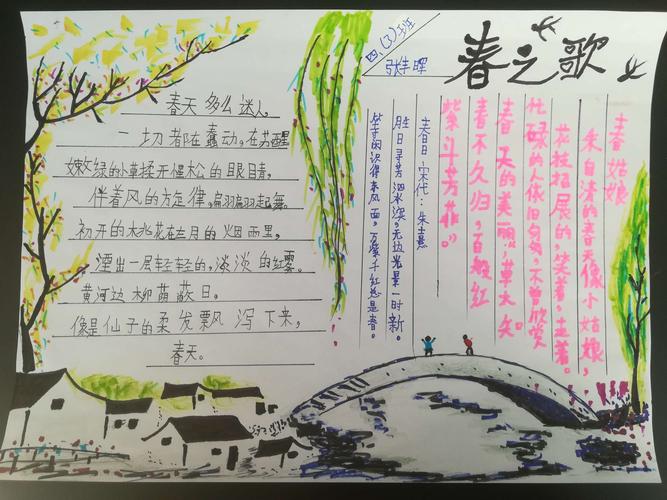 春之歌
四、(3)班
张佳晖
春天多么迷人。
一切都在蠢动。在苏醒
嫩绿的小草揉开惺松的眼睛,
伴着风的旋律,翩翩起舞。
初开的桃花在三月的烟雨里,
湮出一层轻轻的,淡淡的红雾。
黄河边柳荫蔽日。
像是仙子的柔发飘泻下来,
春天。
春姑娘
朱自清的春天像小姑娘,
花枝招展的,笑着,走着。
忙碌的人依旧匆匆,不曾欣赏
春天的美丽
春不久归,百般红
紫斗芳菲。
春日 宋代:朱熹
胜日寻芳泗水滨,无边光景一时新。
等闲识得东风面,万紫千红总是春。